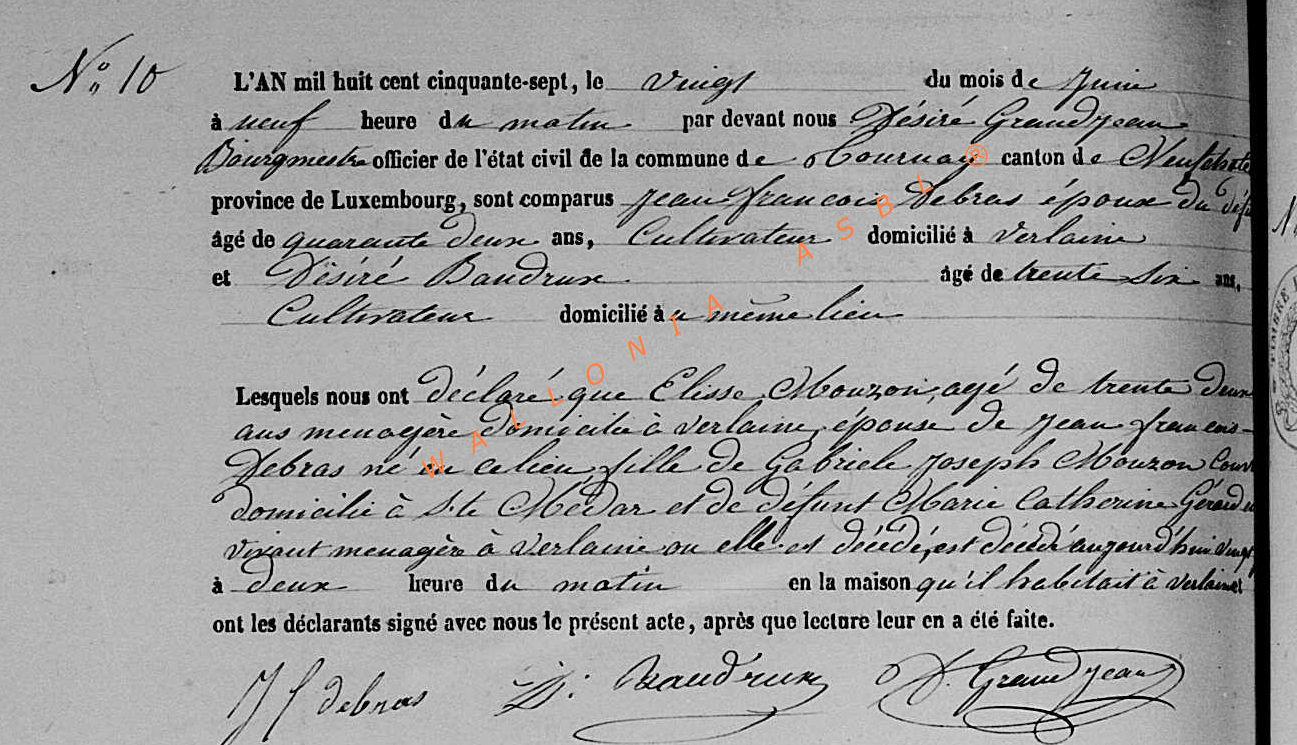 No 10
L'AN mil huit cent cinquante-sept, le vingt du mois de Juin
à neuf heure du matin par devant nous Désiré Grandjean
Bourgmestre officier de l'état civil de la commune de Tournay canton de Neufchate
province de Luxembourg, sont comparus Jean francois Debras époux du déf
âgé de quarante deux ans, Cultivateur domicilié à Verlaine
et Désiré Baudrux âgé de trente Six ans,
Cultivateur domicilié à u même lieu
Lesquels nous ont déclaré que Elisse Mouzon, agé de trente deux
ans menagère domicilié à Verlaine, épouse de Jean francois
Debras né en ce lieu fille de Gabriele Joseph Mouzon
domicilié à Ste Médar et de défunt Marie Catherine Gérard en
vivant menagère à Verlaine ou elle est décédé, est décédé aujourd'hui vingt
à deux heure du matin en la maison qu'il habitait à Verlaine et
ont les déclarants signé avec nous le présent acte, après que lecture leur en a été faite.
J f debras D. Baudrux D. Grandjean
WALLONIA ASBL ®